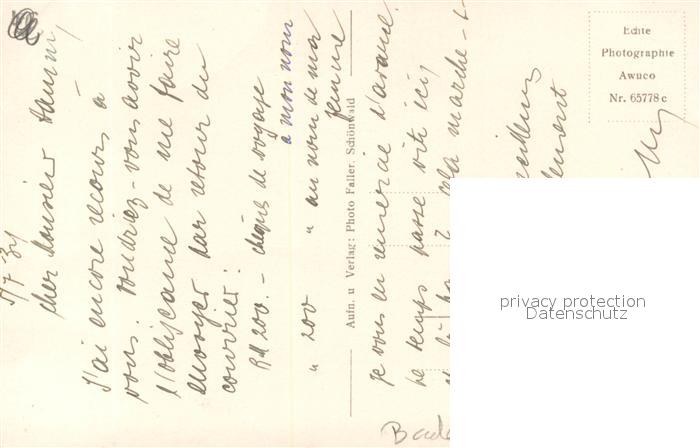 5/7 39
cher Monsieur
J'ai encore recours à
vous. Voudriez-vous avoir
l'obligeance de me faire
envoyer par retour du
courrier:
RM 200.- chèques de voyage
à mon nom
" 200 " au nom de ma
femme
Aufn. u Verlag: Photo Faller, Schönwald
Je vous en remercie d'avance.
Le temps passe vite ici,
cela marche-t-
Echte
Photographie
Awuco
Nr. 65778c
privacy protection
Datenschutz